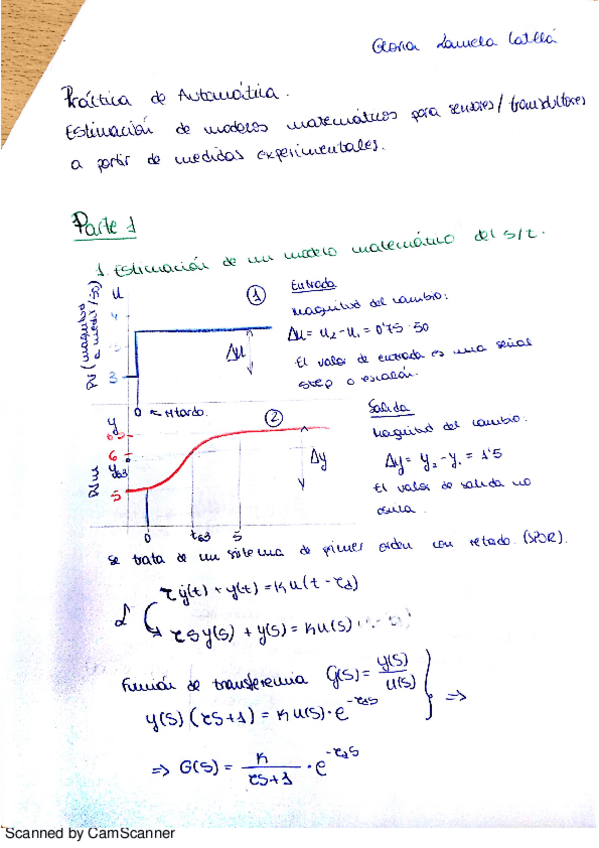 Gloria Lamela
Práctica de Automática.
Estimación de modelos matemáticos para sensores/transductores
a partir de medidas experimentales.
Parte 1
1. Estimación de un modelo matemático del S/t.
u
PV (magnitud a medir/50)
4
3
0 = retardo.
Δu
①
Entrada
Magnitud del cambio:
Δu = u₂-u₁ = 0'75·50
El valor de entrada es una señal
step o escalón.
y
6
y63
5
0
t63
5
Δy
②
Salida
Magnitud del cambio:
Δy = y₂-y₁ = 1'5
El valor de salida no
oscila.
Se trata de un sistema de primer orden con retado. (SPOR).
τẏ(t) + y(t) = Ku(t-τd)
L
τsy(s) + y(s) = Ku(s)
Función de transferencia G(s) = y(s)/u(s)
y(s)(τs+1) = Ku(s)·e^-τds
⇒
⇒ G(s) = K/τs+1 · e^-τds
Scanned by CamScanner